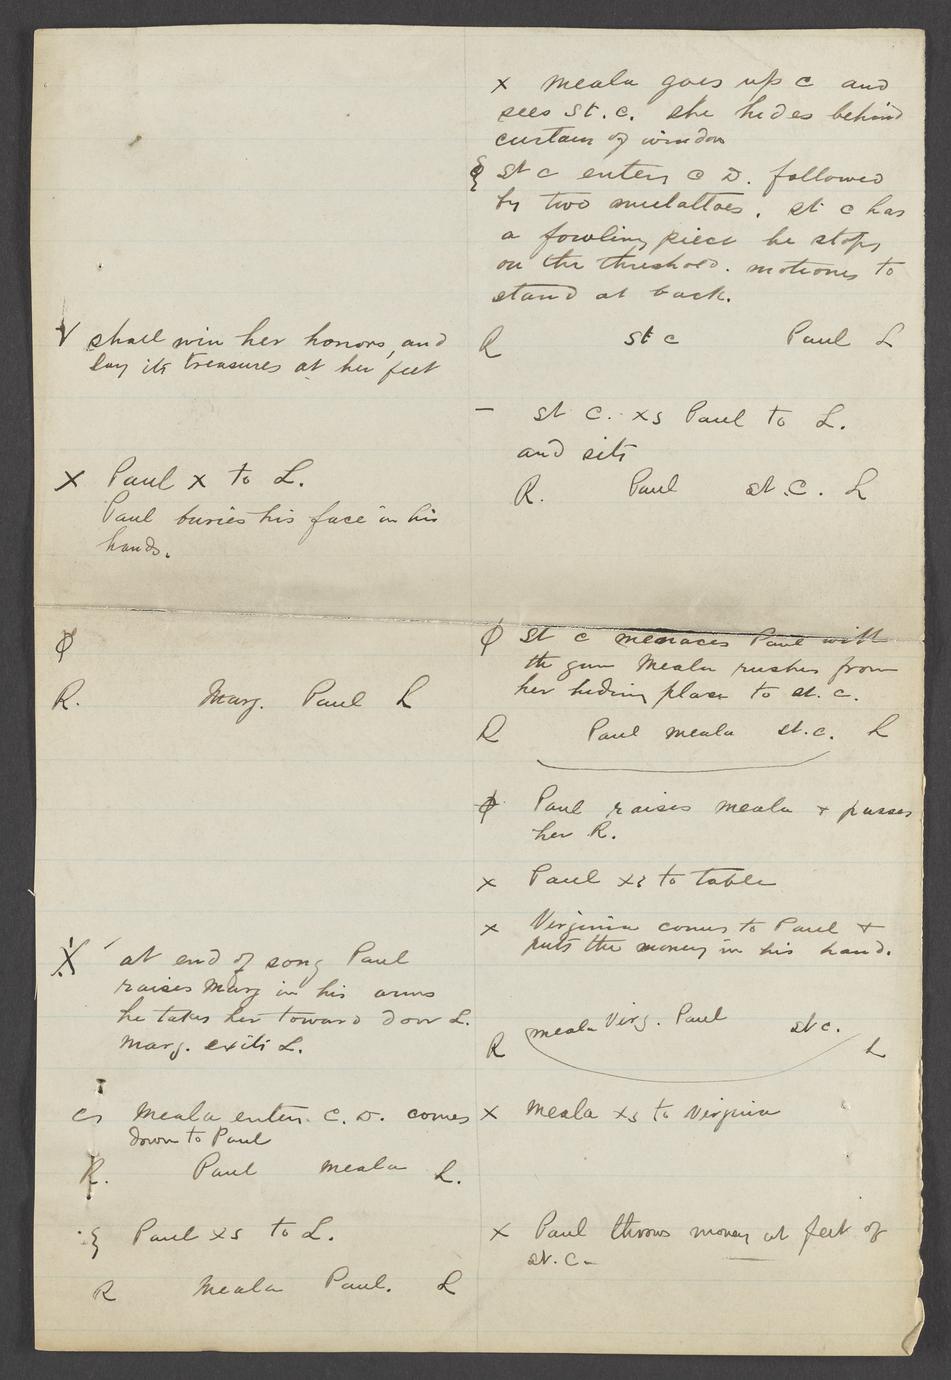 V shall win her honors, and
lay its treasures at her feet
X Paul x to L.
Paul buries his face in his
hands.
ϕ
R. Marg. Paul L
X at end of song Paul
raises Marg in his arms
he takes her toward door L.
Marg. exits L.
Meala enters C. D. comes
down to Paul
R. Paul Meala L.
Paul xs to L.
R Meala Paul. L
x Meala goes up C and
sees St. C. She hides behind
curtain of window
St C enters C D. followed
by two mulattoes. St C has
a fowling piece he stops
on the threshold. motiones to
stand at back.
R St C Paul L
– St C. xs Paul to L.
and sits
R. Paul St. C. L
ϕ St C menaces Paul with
the gun Meala rushes from
her hiding place to St. C.
R Paul Meala St. C. L
ϕ Paul raises Meala + passes
her R.
x Paul xs to table
x Virginia comes to Paul +
puts the money in his hand.
R Meala Virg. Paul St C. L
x Meala xs to Virginia
x Paul throws money at feet of
St. C.–